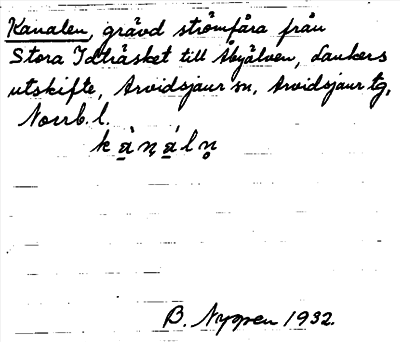 Kanalen, grävd strömfåra från
Stora Idträsket till Åbyälven, Laukers
utskifte, Arvidsjaur sn, Arvidsjaur tg,
Norrb. l.
kànáln̥
B. Nyppen 1932.